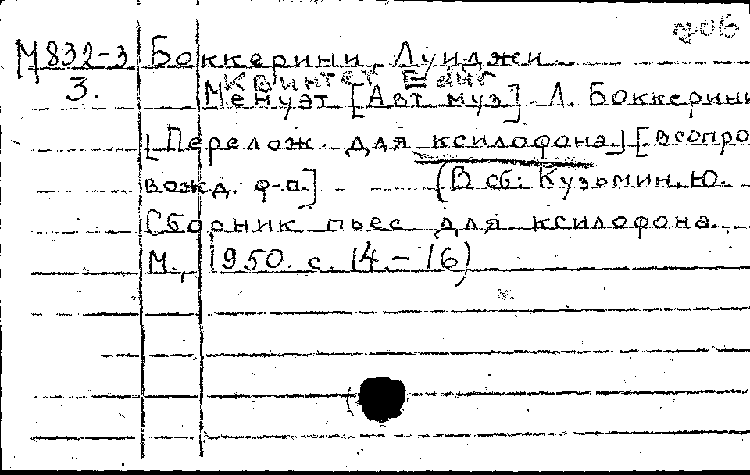 М832-3 Боккерини, Луиджи
Квинтет
3. Менуэт [Авт. муз.] Л. Боккерини
[Перелож. для ксилофона] [в сопро
вожд. ф-п.] - (В сб: Кузьмин, Ю.
Сборник пьес для ксилофона.
М., 1950. с. 14-16)